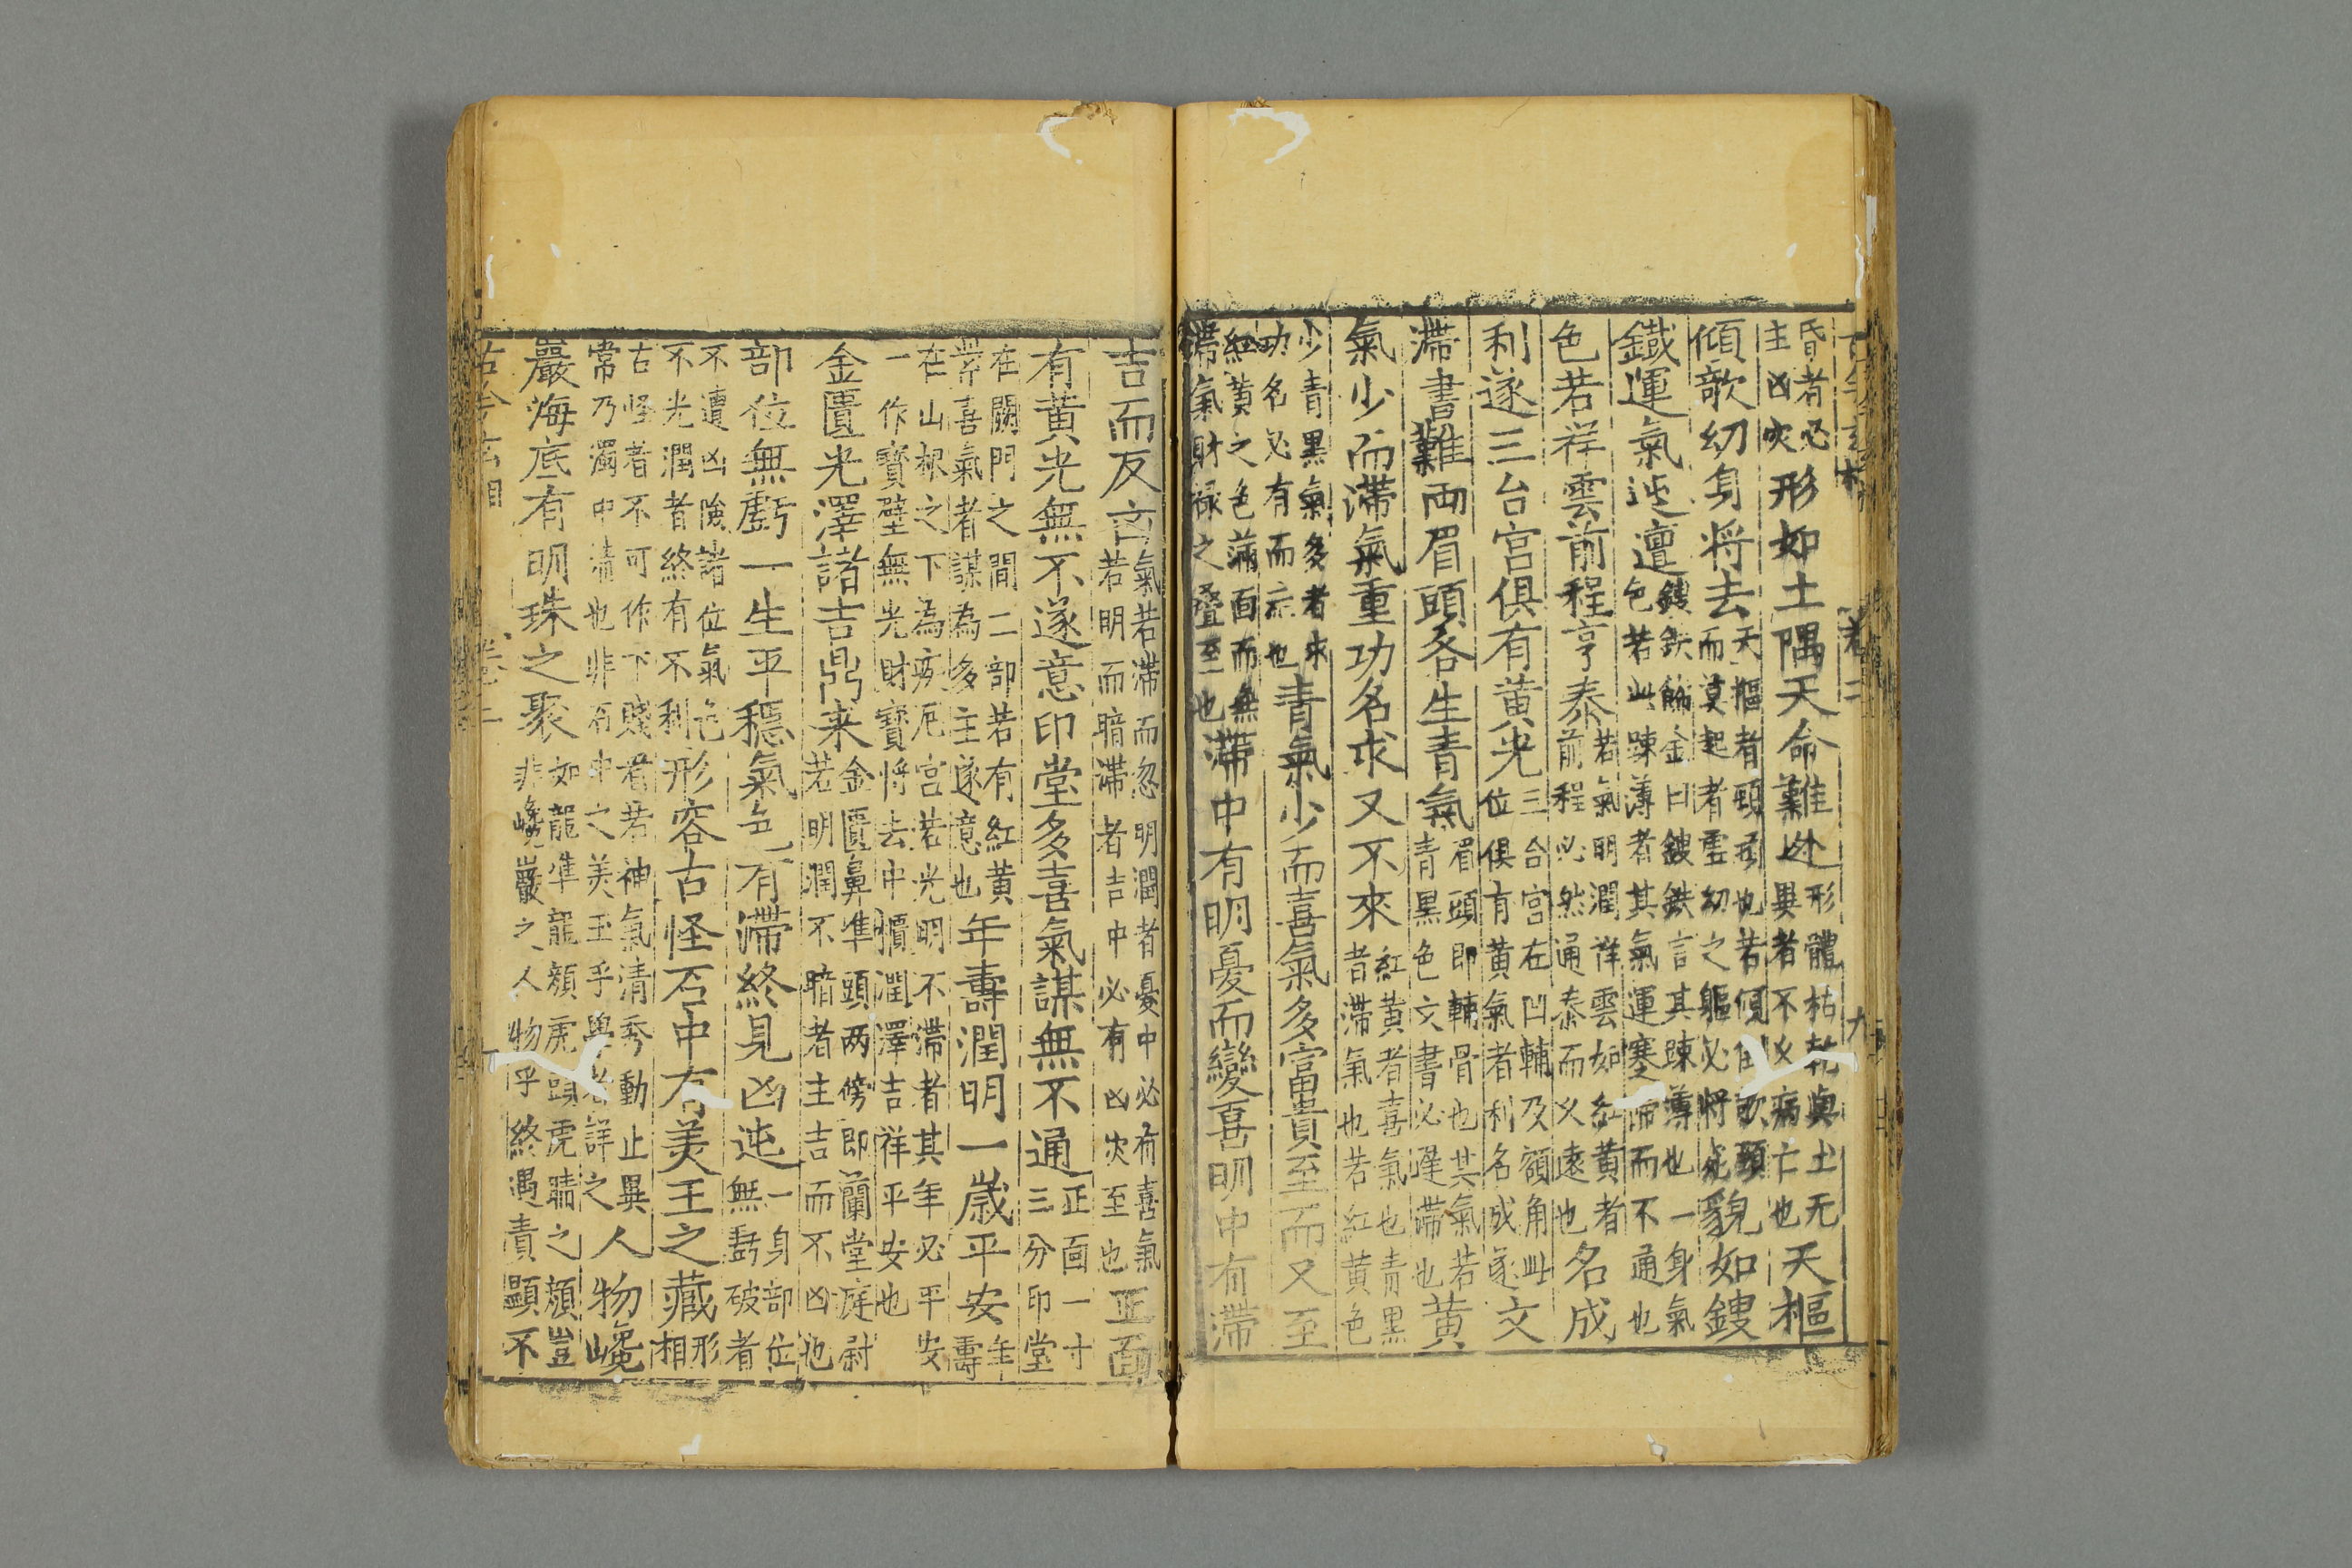 古今玄相 卷二 九
昏者必主凶灾形如土隅天命難逃形體枯乾與土无異者不久病亡也天樞
傾歌幼身将去天樞者頭頂也若傾倒歌頭而莫起者雲幼之軀必將死貌如鎪
鐵運氣迍邅鎪鉄餙金曰鎪鉄言其踈薄也一身氣色若此踈薄者其氣運蹇滯而不通也
色若祥雲前程亨泰若氣明潤祥雲如紅黄者前程必然通泰而久遠也名成
利遂三台宮俱有黄光三台宮在凹輔及額角此位俱有黄氣者利名成遂文
滯書難两眉頭各生青氣眉頭即輔骨也其氣若青黒色文書必遲滯也黄
氣少而滯氣重功名求又不來紅黄者喜氣也青黒者滯氣也若紅黄色
少青黒氣多者求功名必有而也青氣少而喜氣多富貴至而又至
紅黄之色滿面而無滯氣財禄之疊至也滯中有明憂而變喜明中有滯
吉而反㐫氣若滯而忽明潤者憂中必有喜氣若明而暗滯者吉中必有凶灾至也正面
有黄光無不遂意印堂多喜氣謀無不通正面一寸三分印堂
在關門之間二部若有紅黄帶喜氣者謀為多主遂意也年壽潤明一歳平安年壽
在山根之下為疾厄宮若光明不滯者其年必平安一作寳壁無光財寳將去中櫃潤澤吉祥平安也
金匱光澤諸吉鼎来金匱鼻準頭两傍即蘭堂庭尉若明潤不暗者主吉而不凶也
部位無虧一生平穩氣色有滯終見凶迍一身部位無虧破者
不遭凶險諸位氣色不光潤者終有不利形容古怪石中有美玉之藏形相
古怪者不可作下賤看若神氣清秀動止異常乃濁中清也非石中之美玉乎學者詳之人物巉
巖海底有明珠之聚如龍準龍顔虎頭虎睛之類豈非巉巖之人物乎終遇責顯不
古今玄相 卷二